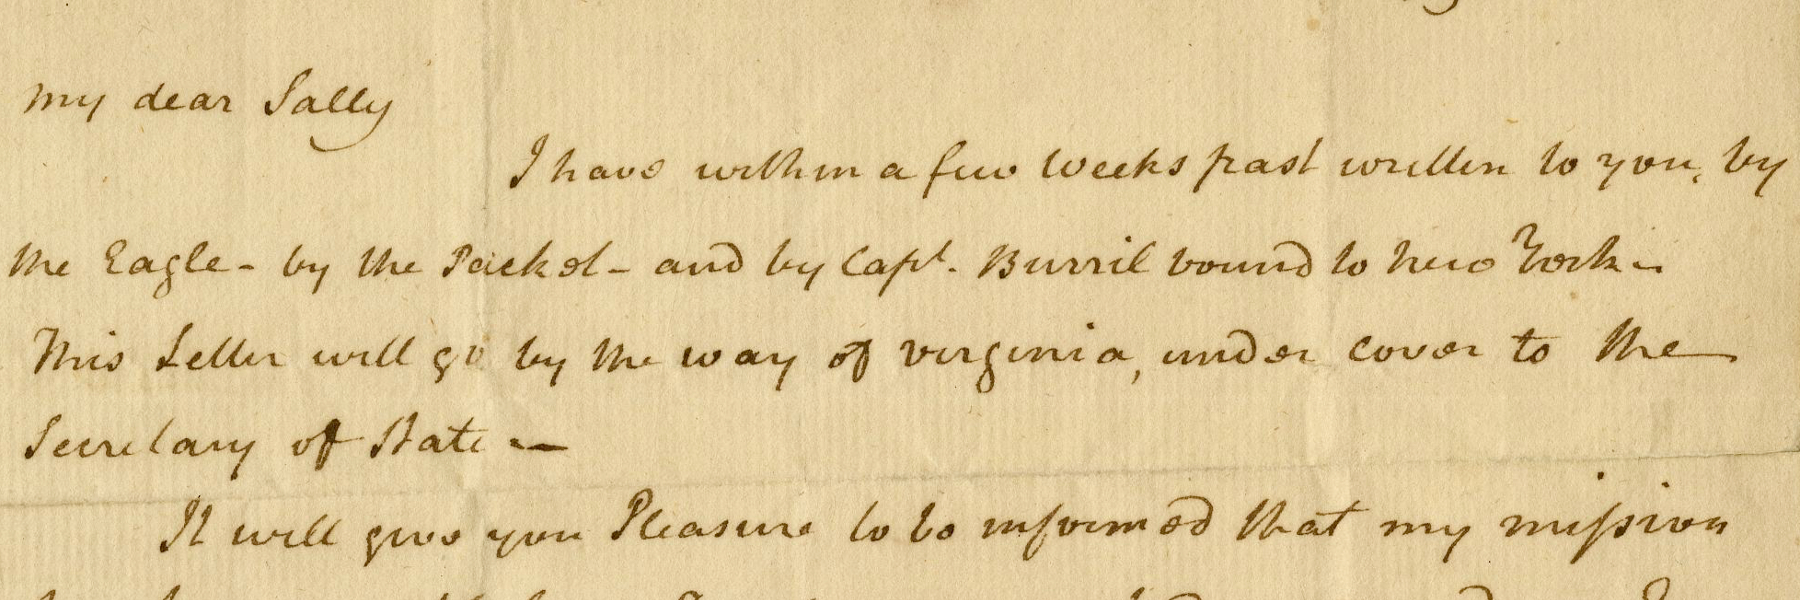 my dear Sally
I have within a few weeks past written to you, by
the Eagle - by the Packet - and by Capt. Burril bound to New York -
This Letter will go by the way of virginia, under cover to the
Secretary of State -
It will give you Pleasure to be informed that my mission